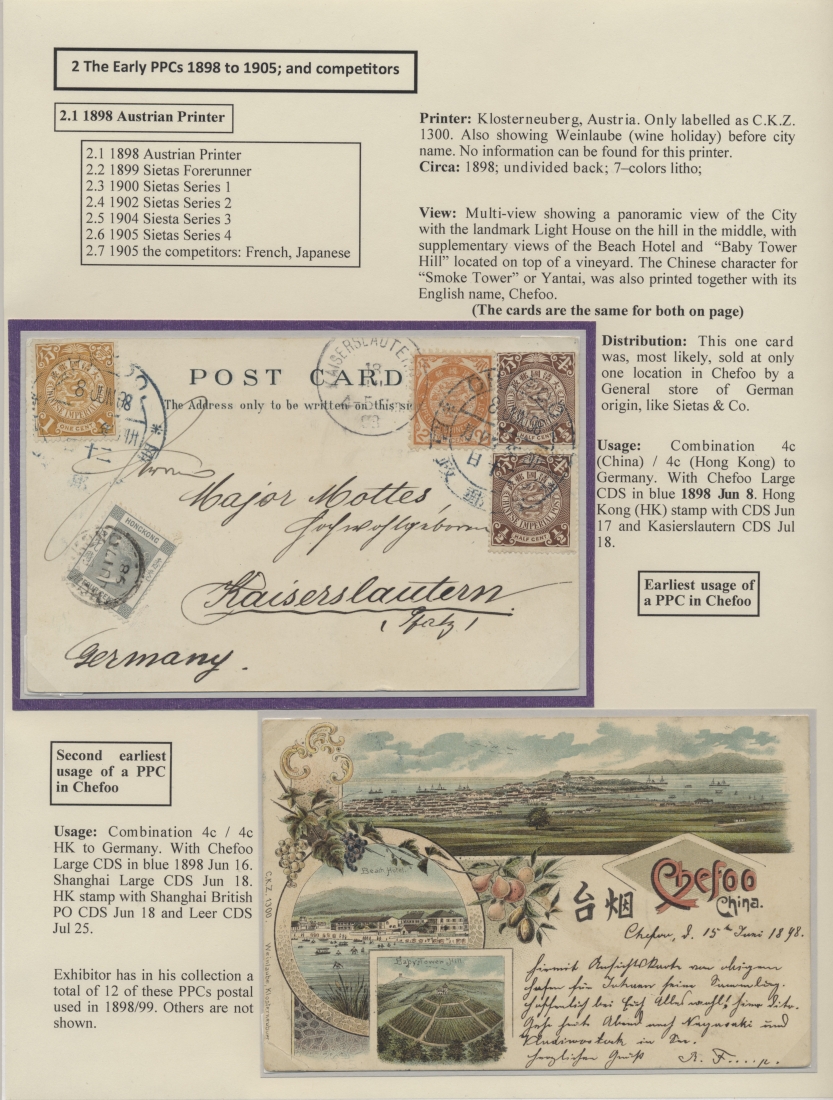 2 The Early PPCs 1898 to 1905; and competitors
2.1 1898 Austrian Printer
2.1 1898 Austrian Printer
2.2 1899 Sietas Forerunner
2.3 1900 Sietas Series 1
2.4 1902 Sietas Series 2
2.5 1904 Siesta Series 3
2.6 1905 Sietas Series 4
2.7 1905 the competitors: French, Japanese
Printer: Klosterneuberg, Austria. Only labelled as C.K.Z.
1300. Also showing Weinlaube (wine holiday) before city
name. No information can be found for this printer.
Circa: 1898; undivided back; 7–colors litho;
View: Multi-view showing a panoramic view of the City
with the landmark Light House on the hill in the middle, with
supplementary views of the Beach Hotel and “Baby Tower
Hill” located on top of a vineyard. The Chinese character for
“Smoke Tower” or Yantai, was also printed together with its
English name, Chefoo.
(The cards are the same for both on page)
Distribution: This one card
was, most likely, sold at only
one location in Chefoo by a
General store of German
origin, like Sietas & Co.
Usage: Combination 4c
(China) / 4c (Hong Kong) to
Germany. With Chefoo Large
CDS in blue 1898 Jun 8. Hong
Kong (HK) stamp with CDS Jun
17 and Kasierslautern CDS Jul
18.
Earliest usage of
a PPC in Chefoo
POST CARD
The Address only to be written on this
KAISERSLAUTERN
18
8 JUN 98
1 ONE CENT
HALF CENT
HALF CENT
HONGKONG
Herrn
Major Mottes
Hochwohlgeboren
Kaiserslautern
(Pfalz)
Germany.
Second earliest
usage of a PPC
in Chefoo
Usage: Combination 4c / 4c
HK to Germany. With Chefoo
Large CDS in blue 1898 Jun 16.
Shanghai Large CDS Jun 18.
HK stamp with Shanghai British
PO CDS Jun 18 and Leer CDS
Jul 25.
Exhibitor has in his collection a
total of 12 of these PPCs postal
used in 1898/99. Others are not
shown.
Beach Hotel
Baby Tower Hill
C.K.Z. 1300. Weinlaube Klosterneuburg
台烟
Chefoo
China.
Chefoo, d. 15ten Juni 1898.
hiermit Ansichtskarte von obigem
Hafen für Deine Sammlung.
Hoffentlich bei Euch Alles wohl, hier dito.
Gehe heute Abend nach Nagasaki und
Wladiwostock in See.
Herzlichen Gruß R. F....